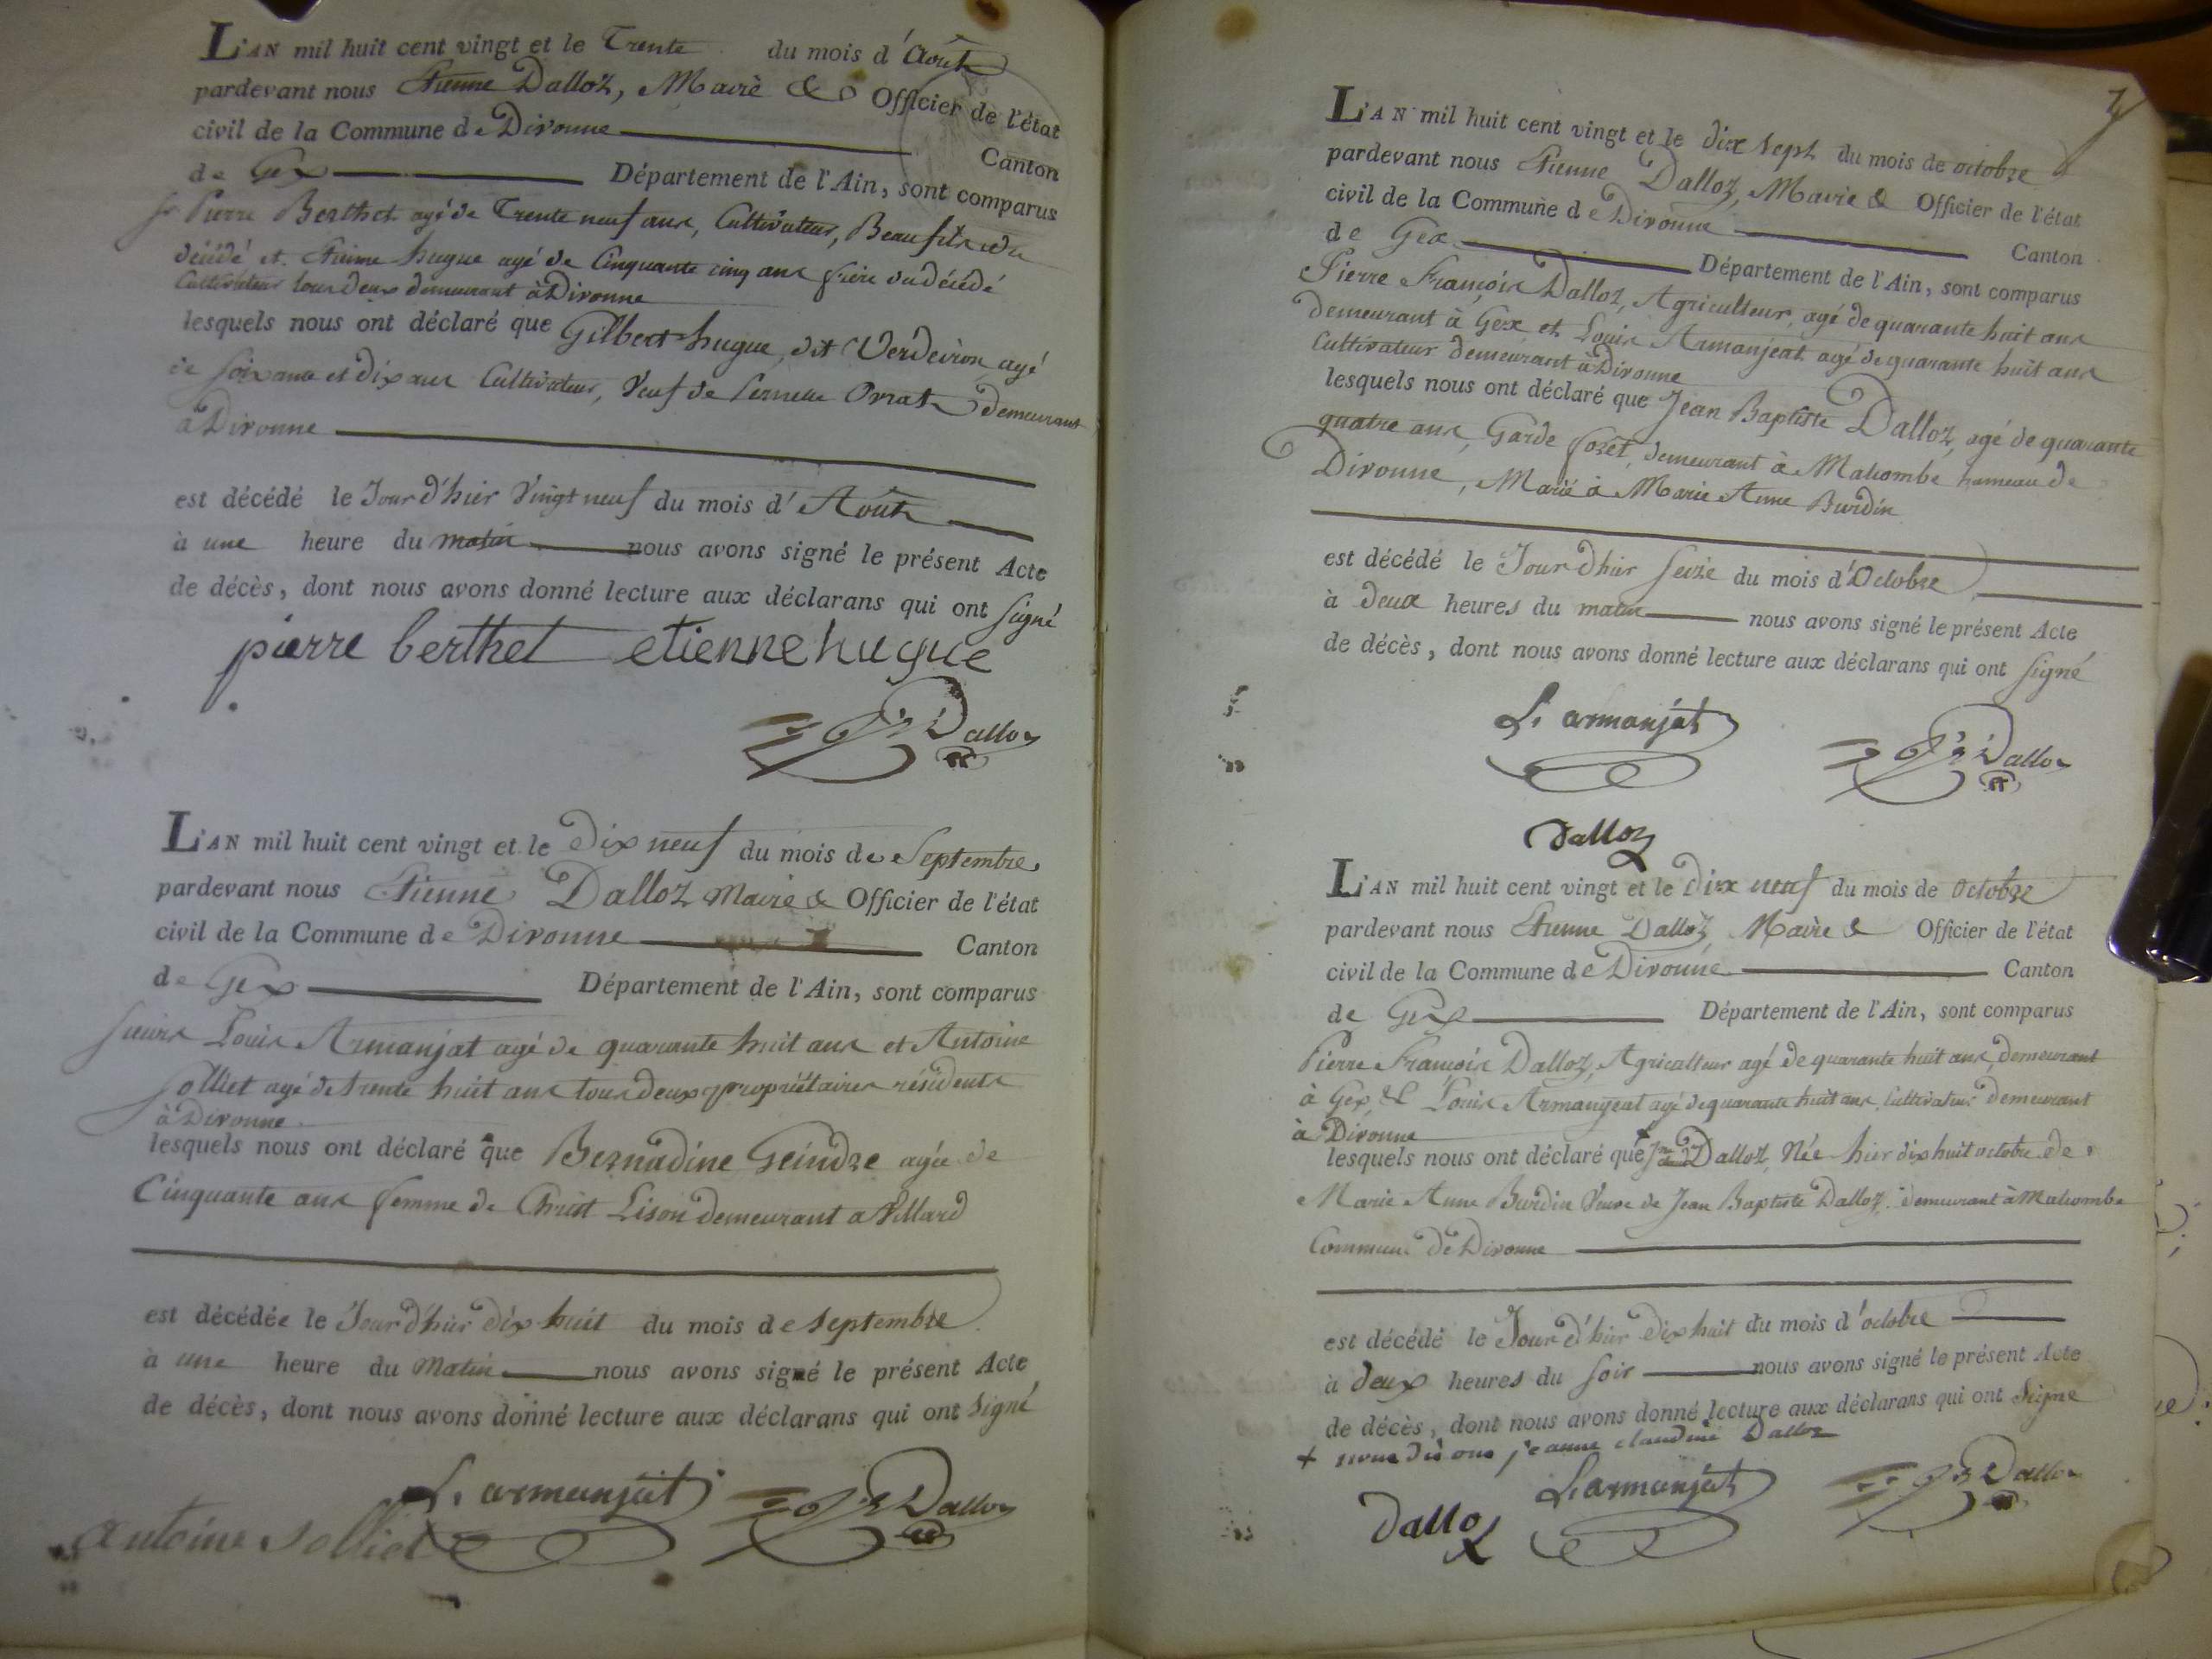 L'AN mil huit cent vingt et le Trente du mois d'Août
pardevant nous Etienne Dalloz, Maire & Officier de l'état
civil de la Commune de Divonne Canton
de Gex Département de l'Ain, sont comparus
Sr Pierre Berthet agé de Trente neuf ans, Cultivateur, Beau fils du
décédé et Etienne hugue agé de Cinquante cinq ans frère du décédé
Cultivateur tous deux demeurant à Divonne
lesquels nous ont déclaré que Gilbert hugue, dit Verdeiron agé
de soixante et dix ans Cultivateur, Veuf de Pernette demeurant
à Divonne
est décédé le Jour d'hier Vingt neuf du mois d'Août
à une heure du matin nous avons signé le présent Acte
de décès, dont nous avons donné lecture aux déclarans qui ont signé
pierre berthet etienne hugue
Dalloz
L'AN mil huit cent vingt et le Dix neuf du mois de Septembre
pardevant nous Etienne Dalloz Maire & Officier de l'état
civil de la Commune de Divonne Canton
de Gex Département de l'Ain, sont comparus
sieurs Louis Armanjat agé de quarante huit ans et Antoine
Solliet agé de trente huit ans tous deux propriétaires résidents
à Divonne
lesquels nous ont déclaré que Bernadine Geindre agée de
Cinquante ans femme de Christ Lison demeurant a Villard
est décédée le Jour d'hier dix huit du mois de Septembre
à une heure du Matin nous avons signé le présent Acte
de décès, dont nous avons donné lecture aux déclarans qui ont signé
L. armanjat Dalloz
antoine solliet
7
L'AN mil huit cent vingt et le dix sept du mois de octobre
pardevant nous Etienne Dalloz, Maire & Officier de l'état
civil de la Commune de Divonne Canton
de Gex Département de l'Ain, sont comparus
Pierre François Dalloz, Agriculteur, agé de quarante huit ans
demeurant à Gex et Louis Armanjeat agé de quarante huit ans
Cultivateur demeurant à Divonne
lesquels nous ont déclaré que Jean Baptiste Dalloz, agé de quarante
quatre ans, Garde forêt, demeurant à Malcombe hameau de
Divonne, Marié à Marie Anne Burdin
est décédé le Jour d'hier seize du mois d'Octobre
à deux heures du matin nous avons signé le présent Acte
de décès, dont nous avons donné lecture aux déclarans qui ont signé
L. armanjat Dalloz
Dalloz
L'AN mil huit cent vingt et le Dix neuf du mois de Octobre
pardevant nous Etienne Dalloz, Maire & Officier de l'état
civil de la Commune de Divonne Canton
de Gex Département de l'Ain, sont comparus
Pierre François Dalloz, Agriculteur agé de quarante huit ans, demeurant
à Gex, & Louis Armanjeat agé de quarante huit ans, Cultivateur demeurant
à Divonne
lesquels nous ont déclaré que + Dalloz, Née hier dix huit octobre de
Marie Anne Burdin Veuve de Jean Baptiste Dalloz, demeurant à Malcombe
Commune de Divonne
est décédé le Jour d'hier dix huit du mois d'octobre
à deux heures du soir nous avons signé le présent Acte
de décès, dont nous avons donné lecture aux déclarans qui ont Signé
+ nous disons jeanne claudine Dalloz
L. armanjat Dalloz
Dalloz